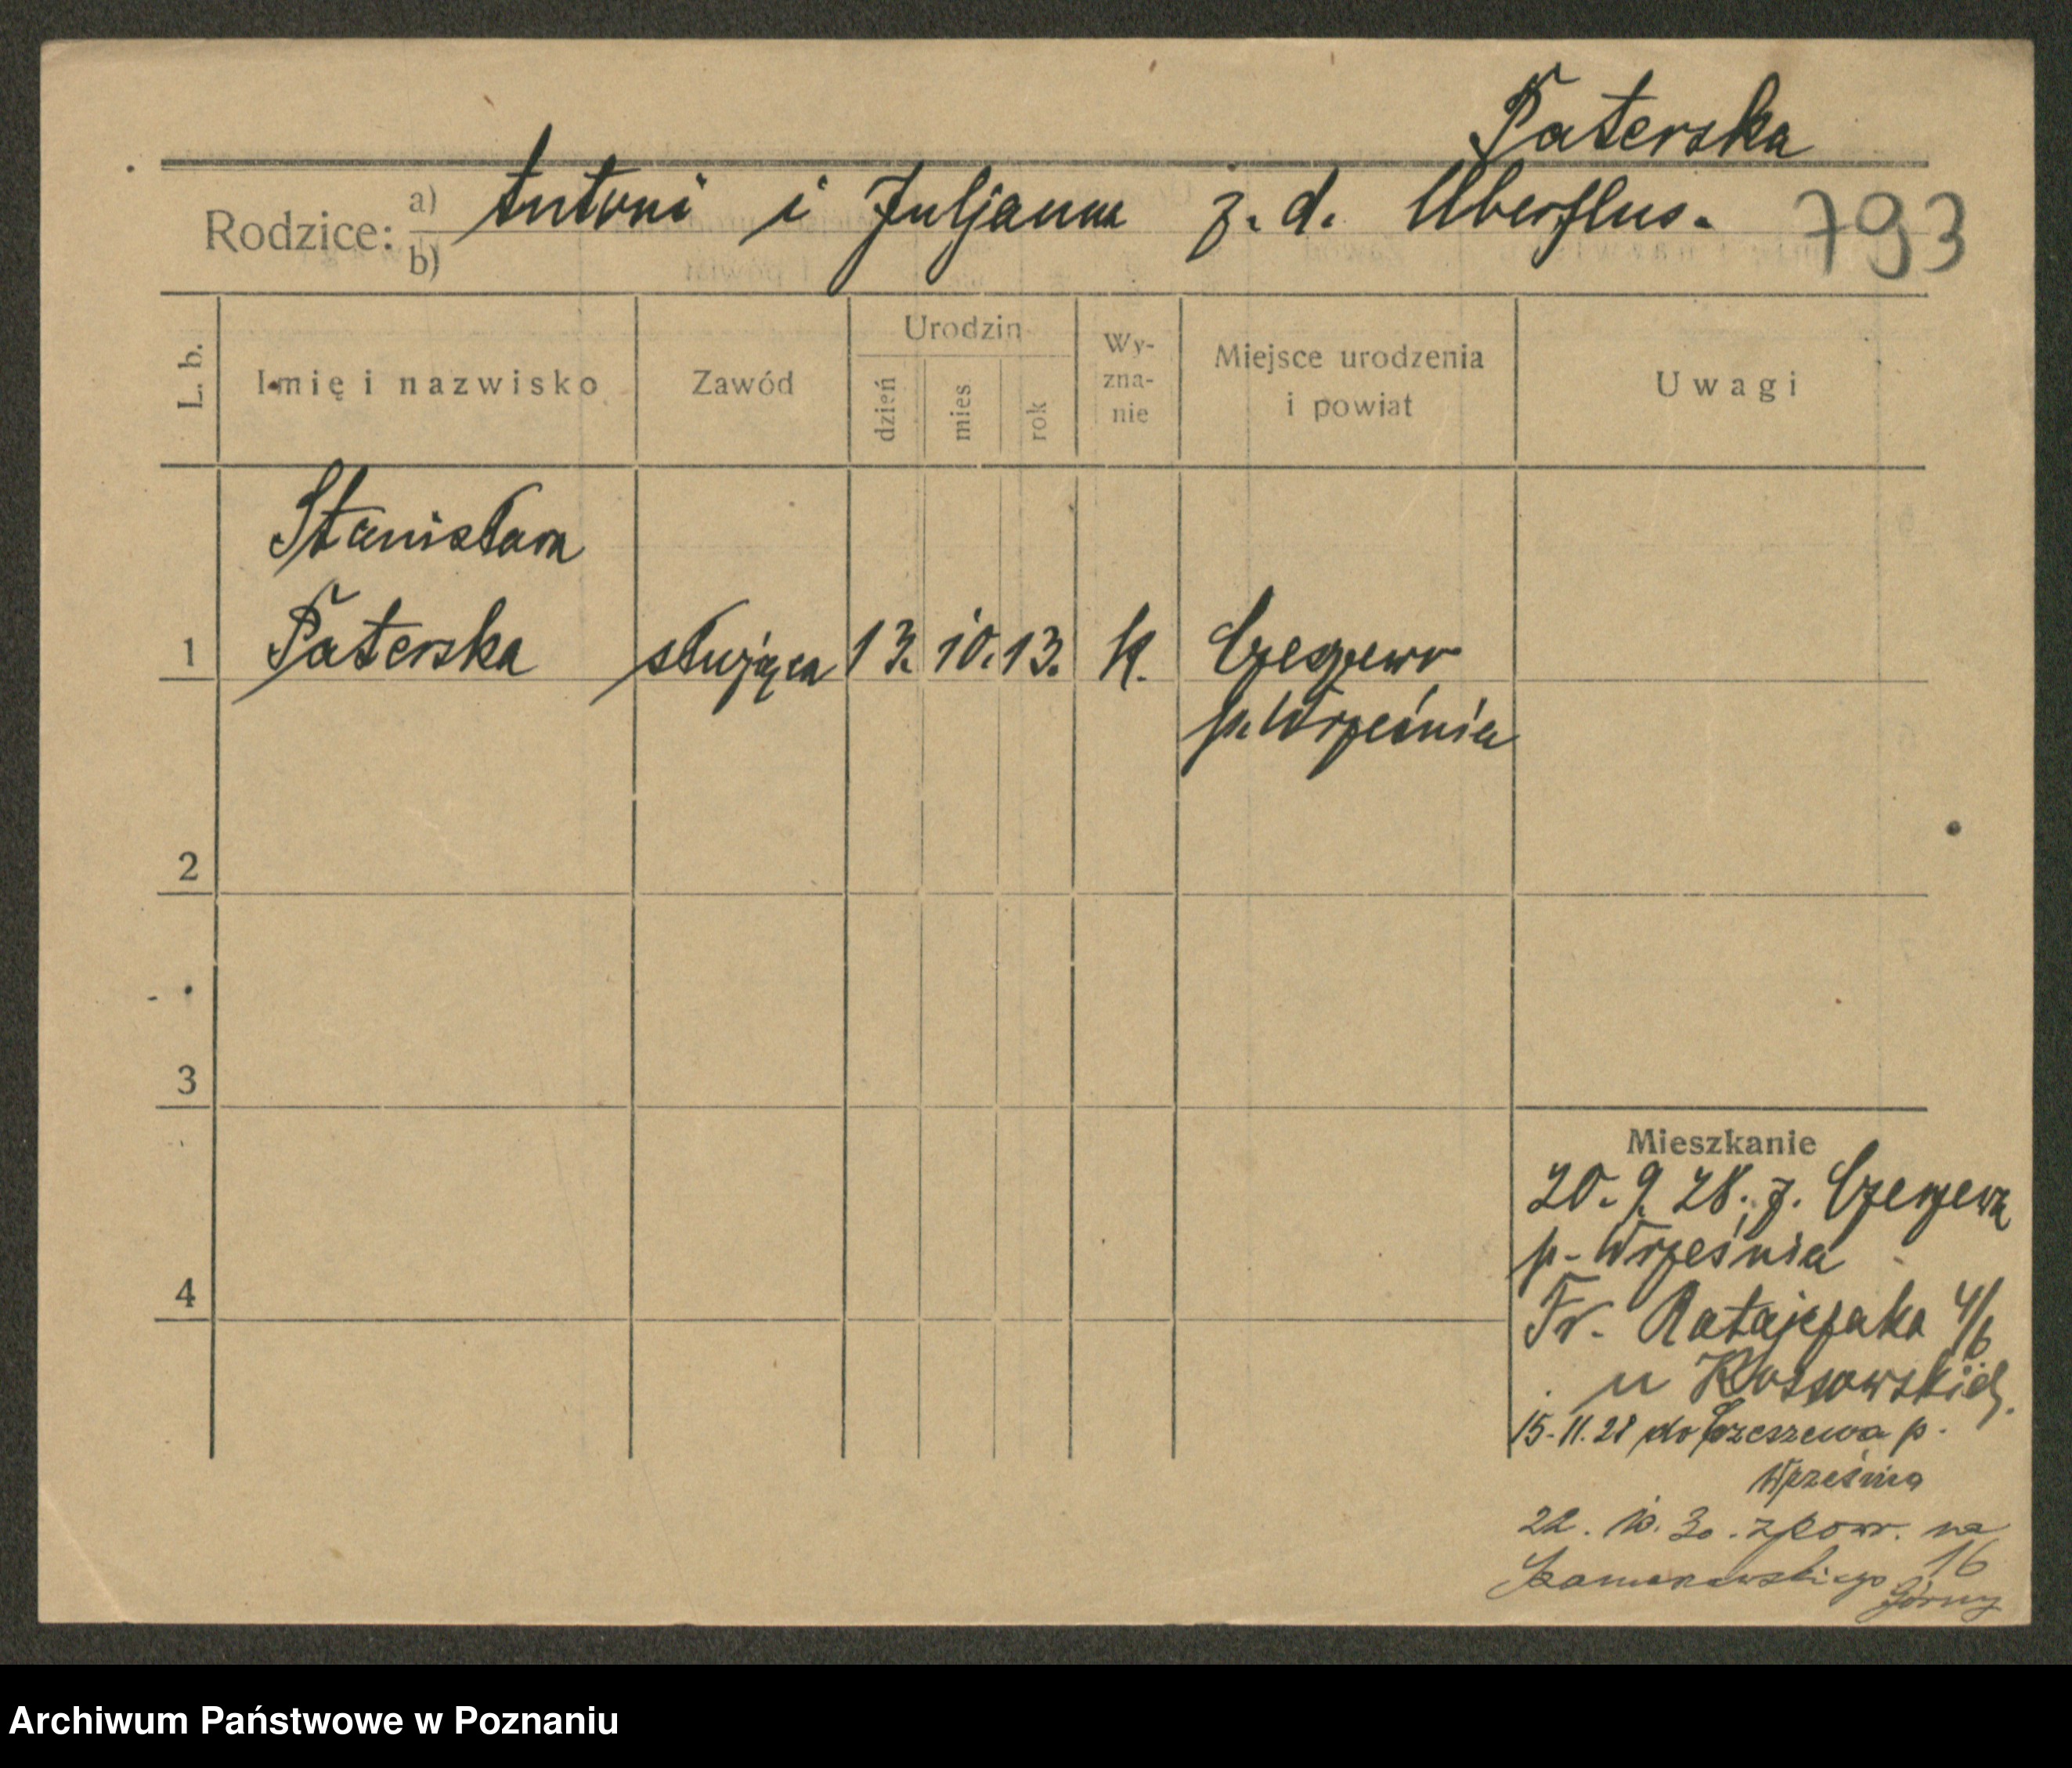 Paterska
Rodzice: a) Antoni i Juljanna z. d. Uberflus. 793
b)
L. b. Imię i nazwisko Zawód Urodzin dzień mies rok Wy-zna-nie Miejsce urodzenia i powiat Uwagi
Stanisława
1 Paterska służąca 13. 10. 13. k. Czeszewo
p. Września
2
3
Mieszkanie
20. 9. 28. z. Czeszewa
p. Września
4
Fr. Ratajczaka 4/6
u Kossowskich.
15. 11. 28 do Czeszewa p.
Września
22. 10. 30. z powr. na
16
Górny
Archiwum Państwowe w Poznaniu